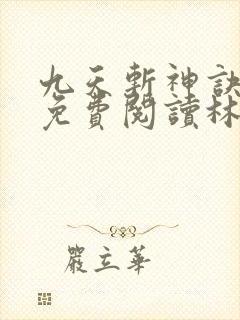 九天斬神訣
免費閱讀林
嚴立華